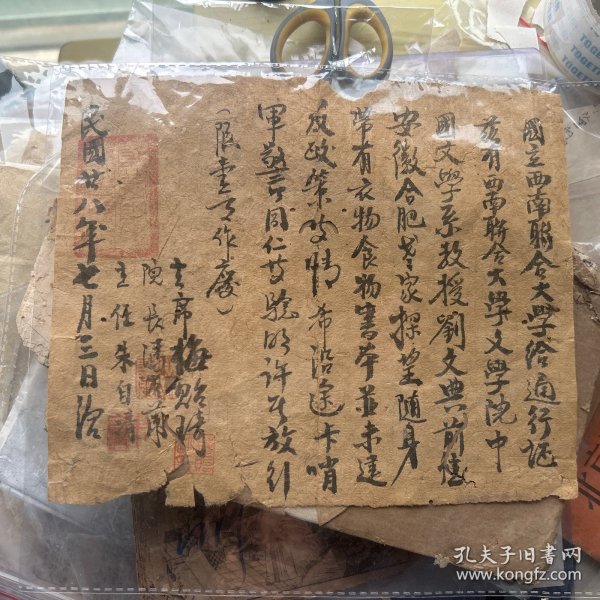 國立西南聯合大學給通行証
茲有西南聯合大學文學院中
國文學系教授劉文典前往
安徽合肥老家探望隨身
帶有衣物食物書本並未違
反政策及情希沿途卡哨
軍警同仁驗明許其放行
(限壹百作廢)
主席梅貽琦
院長
主任朱自清
民國廿八年七月三日給
TOGET
孔夫子旧書网
www.kongfz.com